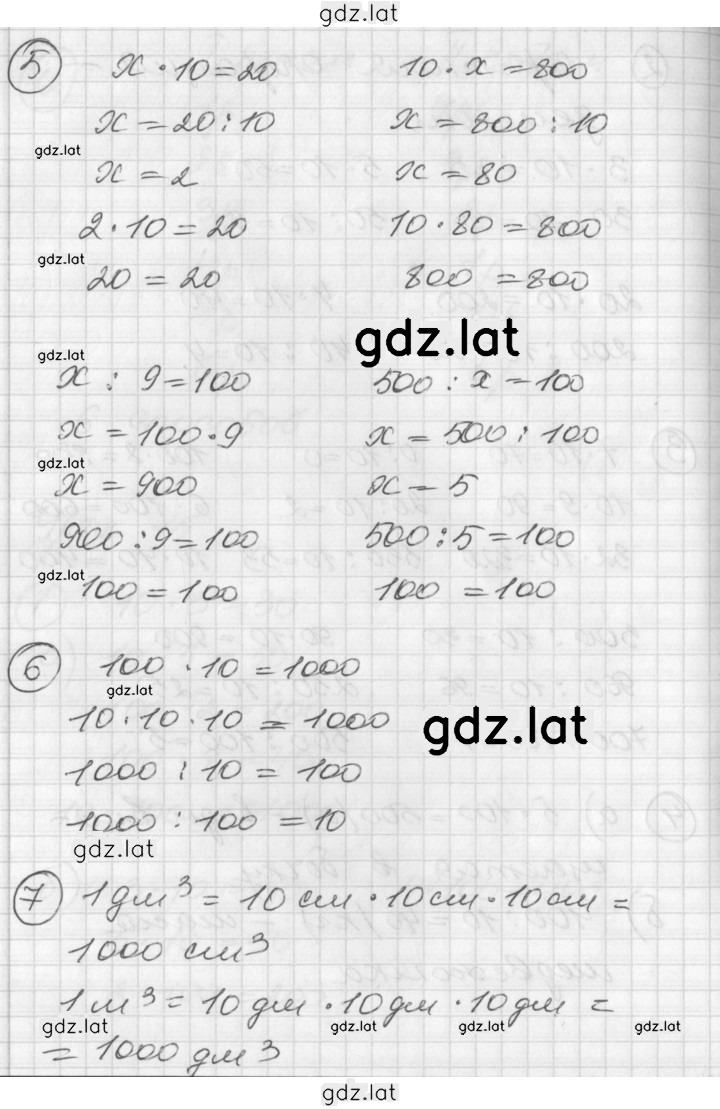 gdz.lat
5 x · 10 = 20 10 · x = 800
x = 20 : 10 x = 800 : 10
gdz.lat
x = 2 x = 80
2 · 10 = 20 10 · 80 = 800
gdz.lat
20 = 20 800 = 800
gdz.lat
gdz.lat
x : 9 = 100 500 : x = 100
x = 100 · 9 x = 500 : 100
gdz.lat
x = 900 x = 5
900 : 9 = 100 500 : 5 = 100
gdz.lat
100 = 100 100 = 100
6 100 · 10 = 1000
gdz.lat
10 · 10 · 10 = 1000
gdz.lat
1000 : 10 = 100
1000 : 100 = 10
gdz.lat
7 1 дм³ = 10 см · 10 см · 10 см =
1000 см³
1 м³ = 10 дм · 10 дм · 10 дм =
gdz.lat gdz.lat gdz.lat gdz.lat
= 1000 дм³
gdz.lat